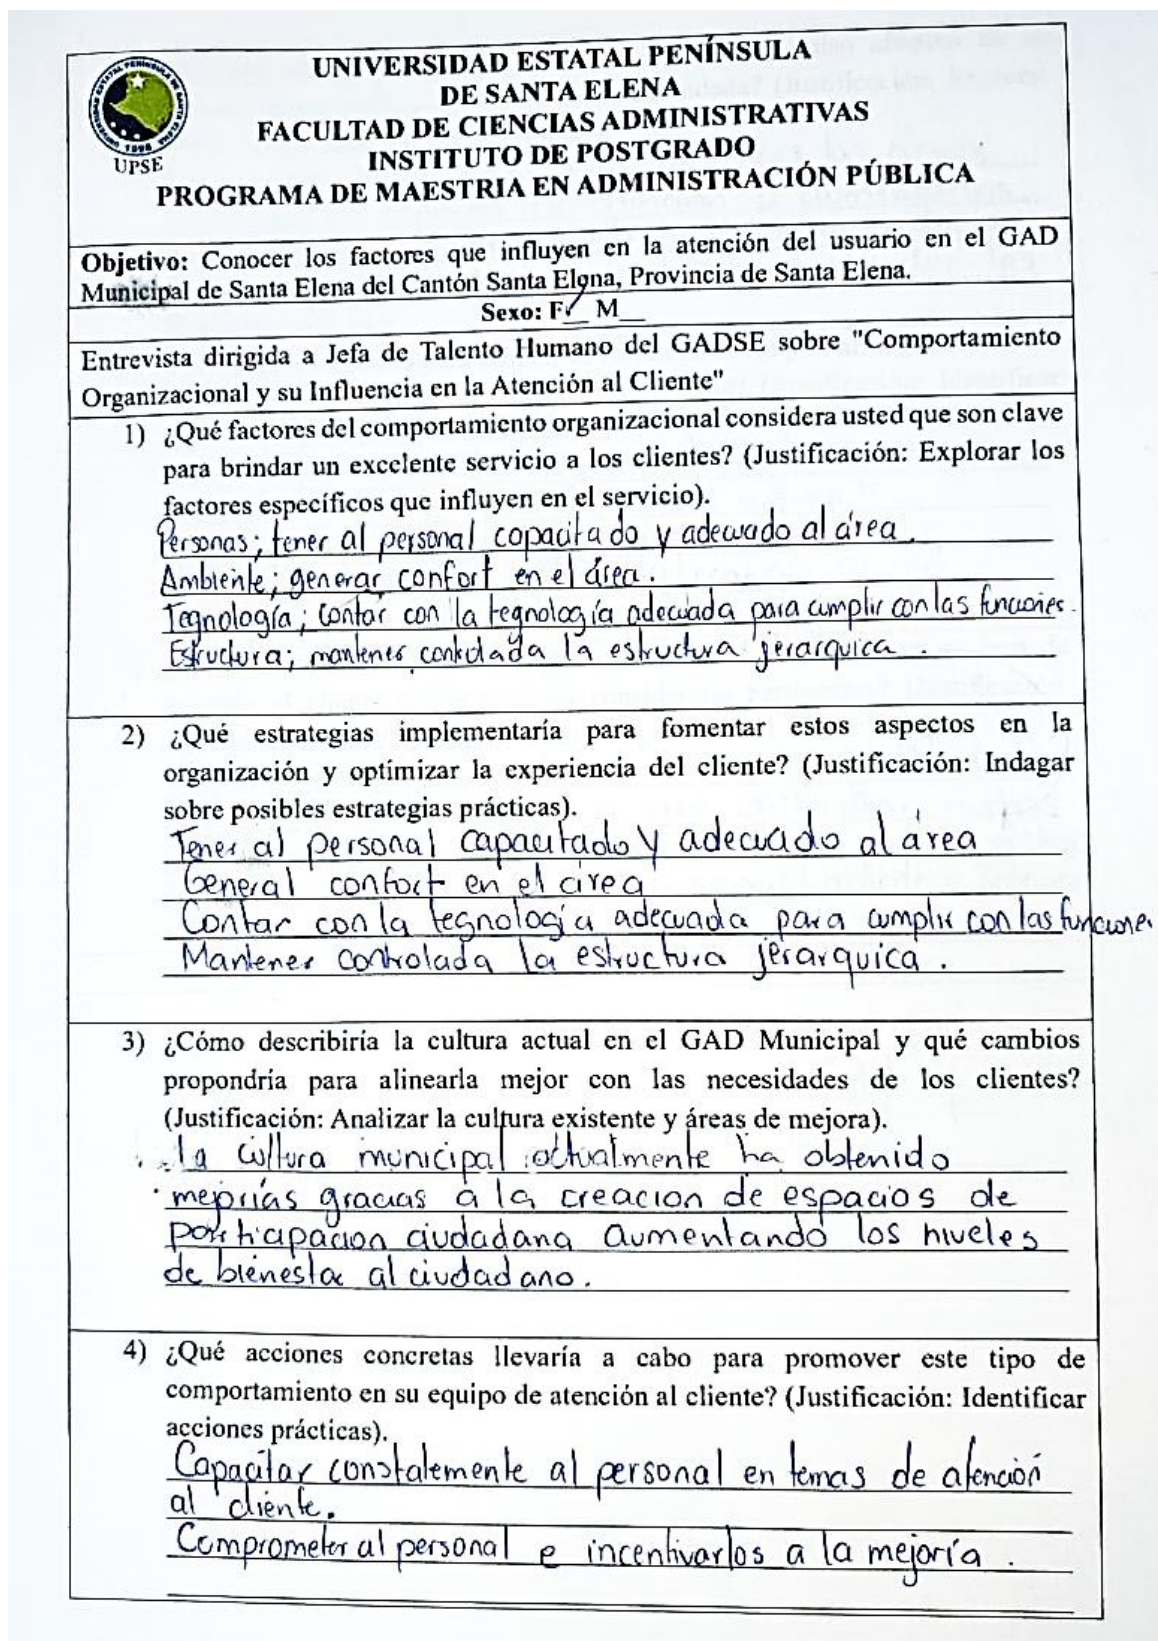 UNIVERSIDAD ESTATAL PENÍNSULA
DE SANTA ELENA
FACULTAD DE CIENCIAS ADMINISTRATIVAS
INSTITUTO DE POSTGRADO
PROGRAMA DE MAESTRIA EN ADMINISTRACIÓN PÚBLICA
UPSE
Objetivo: Conocer los factores que influyen en la atención del usuario en el GAD
Municipal de Santa Elena del Cantón Santa Elena, Provincia de Santa Elena.
Sexo: F✓ M__
Entrevista dirigida a Jefa de Talento Humano del GADSE sobre "Comportamiento
Organizacional y su Influencia en la Atención al Cliente"
1) ¿Qué factores del comportamiento organizacional considera usted que son clave
para brindar un excelente servicio a los clientes? (Justificación: Explorar los
factores específicos que influyen en el servicio).
Personas; tener al personal capacitado y adecuado al área.
Ambiente; generar confort en el área.
Tegnología; contar con la tegnología adecuada para cumplir con las funciones.
Estructura; mantener controlada la estructura jerarquica.
2) ¿Qué estrategias implementaría para fomentar estos aspectos en la
organización y optimizar la experiencia del cliente? (Justificación: Indagar
sobre posibles estrategias prácticas).
Tener al personal capacitado y adecuado al área
General confort en el área
Contar con la tegnología adecuada para cumplir con las funciones
Mantener controlada la estructura jerarquica.
3) ¿Cómo describiría la cultura actual en el GAD Municipal y qué cambios
propondría para alinearla mejor con las necesidades de los clientes?
(Justificación: Analizar la cultura existente y áreas de mejora).
la cultura municipal actualmente ha obtenido
mejorías gracias a la creacion de espacios de
participacion ciudadana aumentando los niveles
de bienestar al ciudadano.
4) ¿Qué acciones concretas llevaría a cabo para promover este tipo de
comportamiento en su equipo de atención al cliente? (Justificación: Identificar
acciones prácticas).
Capacitar constalemente al personal en temas de atención
al cliente.
Comprometer al personal e incentivarlos a la mejoría.